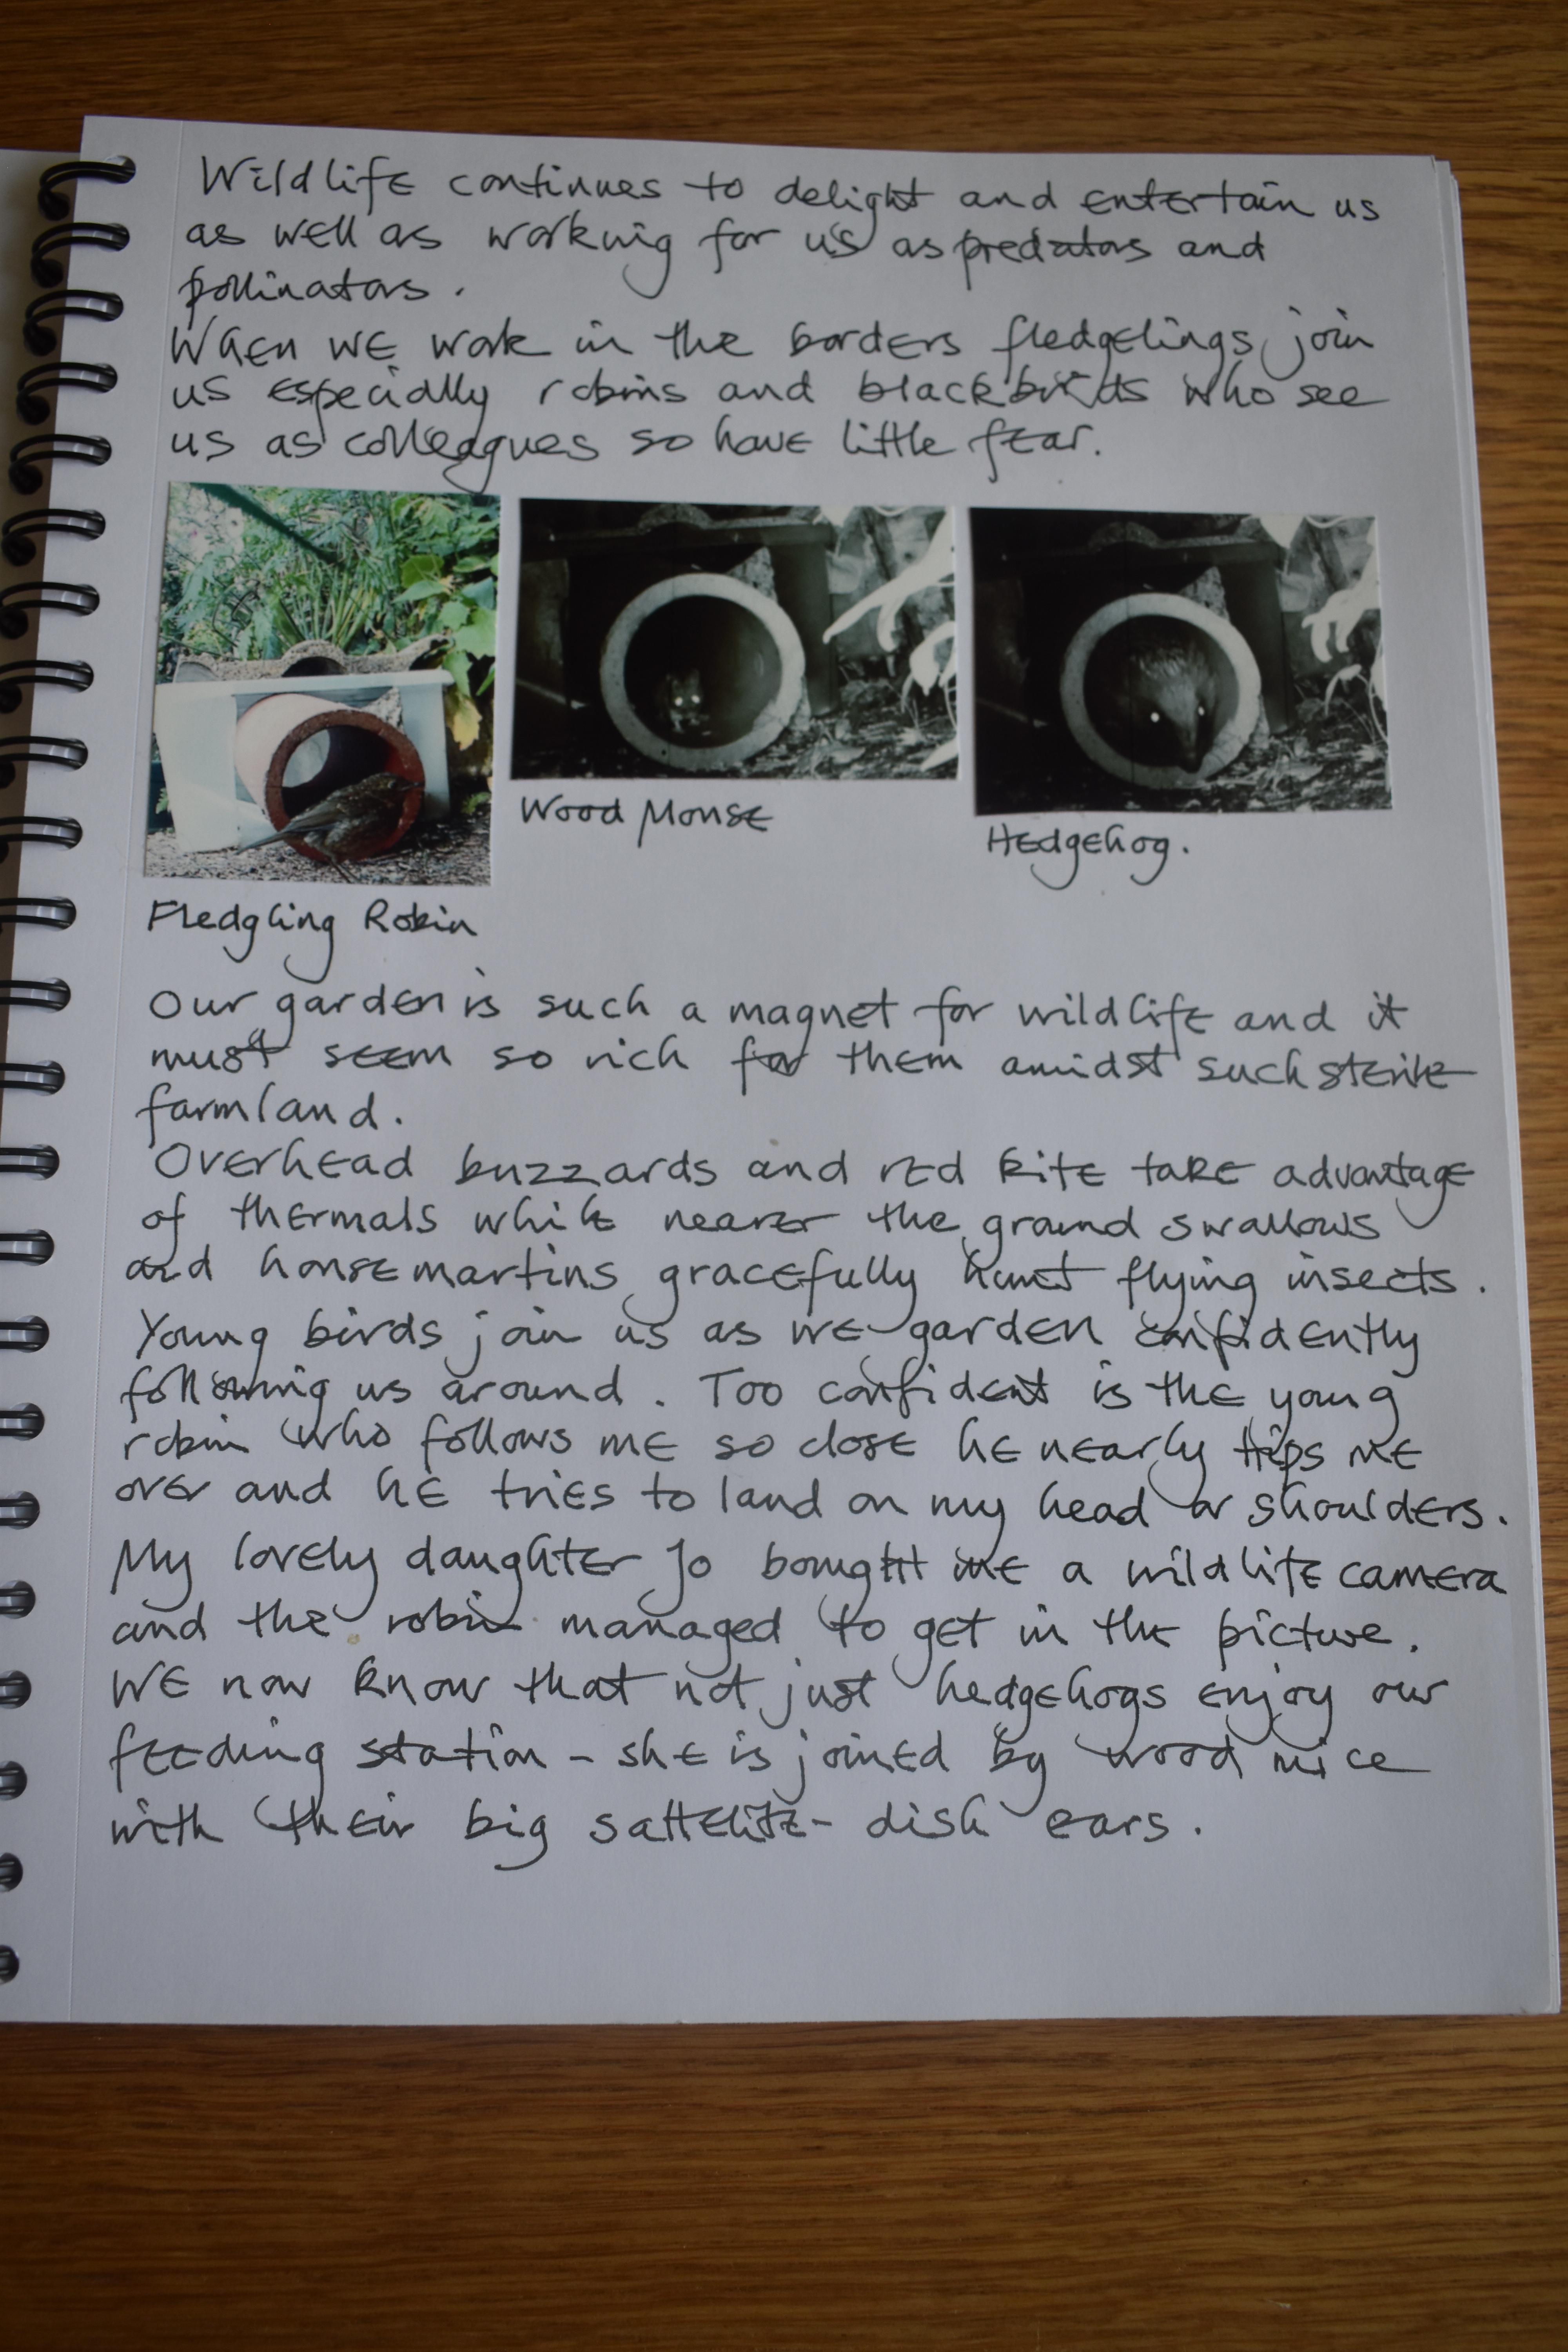 Wildlife continues to delight and entertain us
as well as working for us as predators and
pollinators.
When we work in the borders fledgelings join
us especially robins and blackbirds who see
us as colleagues so have little fear.
Wood Mouse
Hedgehog.
Fledgling Robin
Our garden is such a magnet for wildlife and it
must seem so rich for them amidst such sterile
farmland.
Overhead buzzards and red kite take advantage
of thermals while nearer the ground swallows
and housemartins gracefully hunt flying insects.
Young birds join us as we garden confidently
following us around. Too confident is the young
robin who follows me so close he nearly trips me
over and he tries to land on my head or shoulders.
My lovely daughter Jo bought me a wildlife camera
and the robin managed to get in the picture.
We now know that not just hedgehogs enjoy our
feeding station - she is joined by wood mice
with their big sattelite-dish ears.